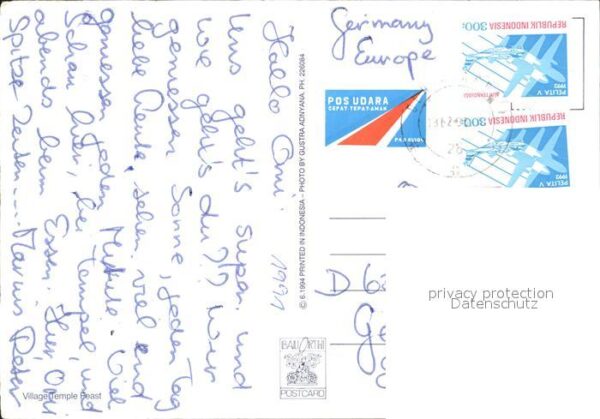 Hallo Omi!
Uns geht's super. und
wie geht's du?!? Wir
genießen Sonne, jeden Tag
liebe Leute, sehen viel und
genießen jeden Minute! Viel
Schau hier, bei Tempel, und
abends beim Essen. Hier, Omi
Spitze Zeiten...
Village Temple Feast
© 6.1994 PRINTED IN INDONESIA - PHOTO BY GUSTRA ADNYANA. PH. 226084
POSTCARD
Germany
Europe
POS UDARA
CEPAT TEPAT AMAN
PAR AVION
REPUBLIK INDONESIA
300
PELITA V
1993
REPUBLIK INDONESIA
300
PELITA V
1993
D 6
privacy protection
Datenschutz